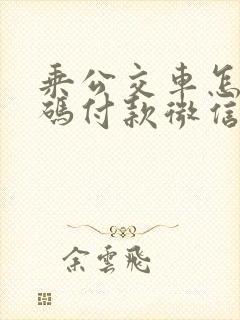 乘公交車怎
碼付款微信
余雲飛